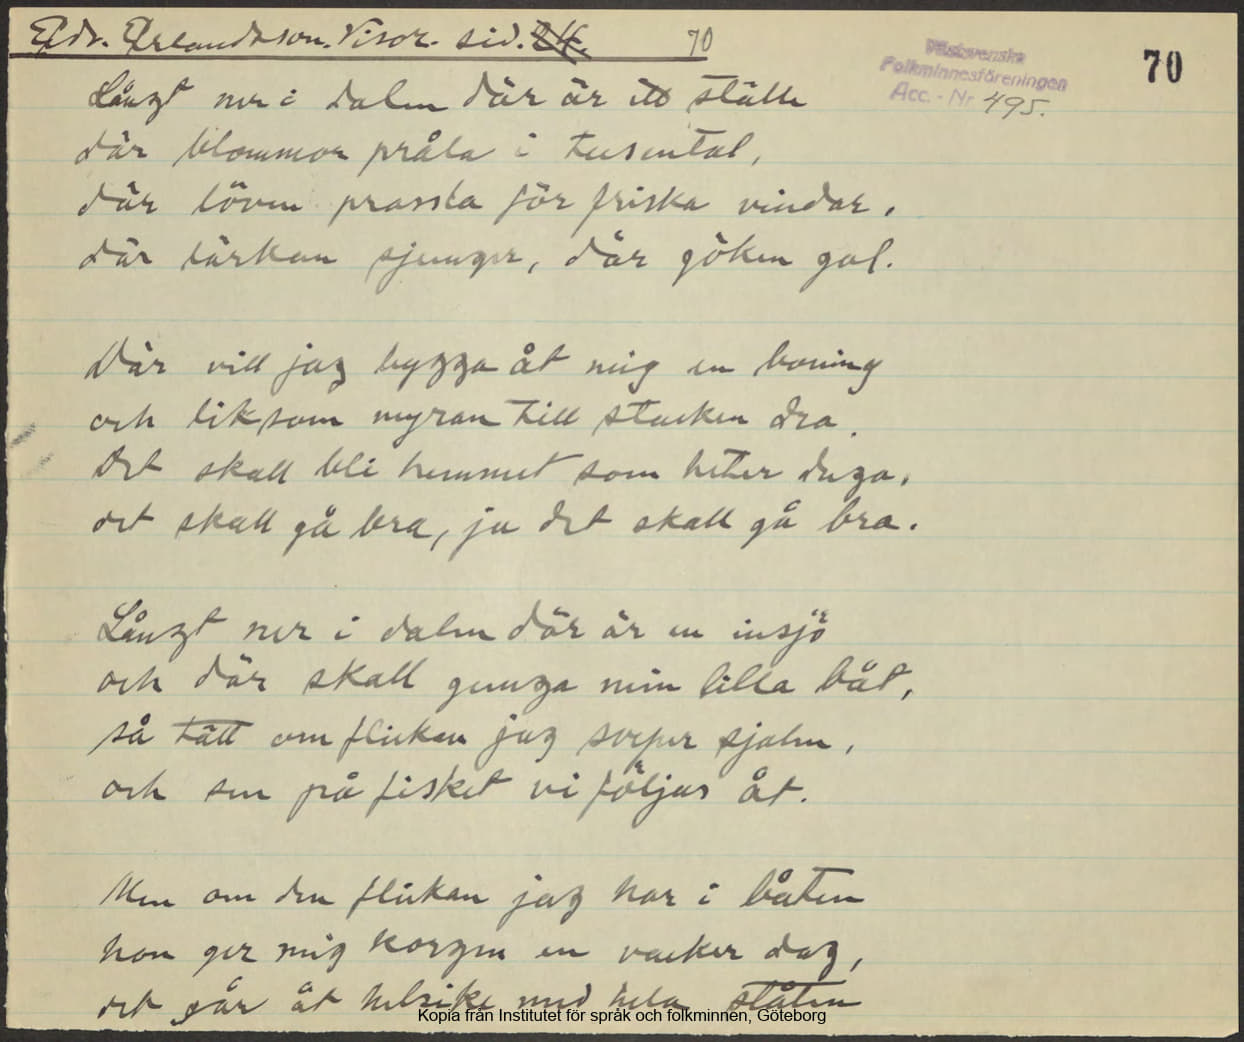 Edv. Erlandsson. Visor. sid. 24. 70
70
Västsvenska
Folkminnesföreningen
Acc.-Nr 495.
Långt ner i dalen där är ett ställe
där blommor pråla i tusental,
där löven prassla för friska vindar,
där lärkan sjunger, där göken gal.
Där vill jag bygga åt mig en boning
och liksom myran till stacken dra.
Det skall bli hemmet som heter duga,
det skall gå bra, ja det skall gå bra.
Långt ner i dalen där är en insjö
och där skall gunga min lilla båt,
så tätt om flickan jag sveper sjalen,
och sen på fisket vi följas åt.
Men om den flickan jag har i båten
hon ger mig korgen en vacker dag,
det går åt helsike med hela ståten
Kopia från Institutet för språk och folkminnen, Göteborg